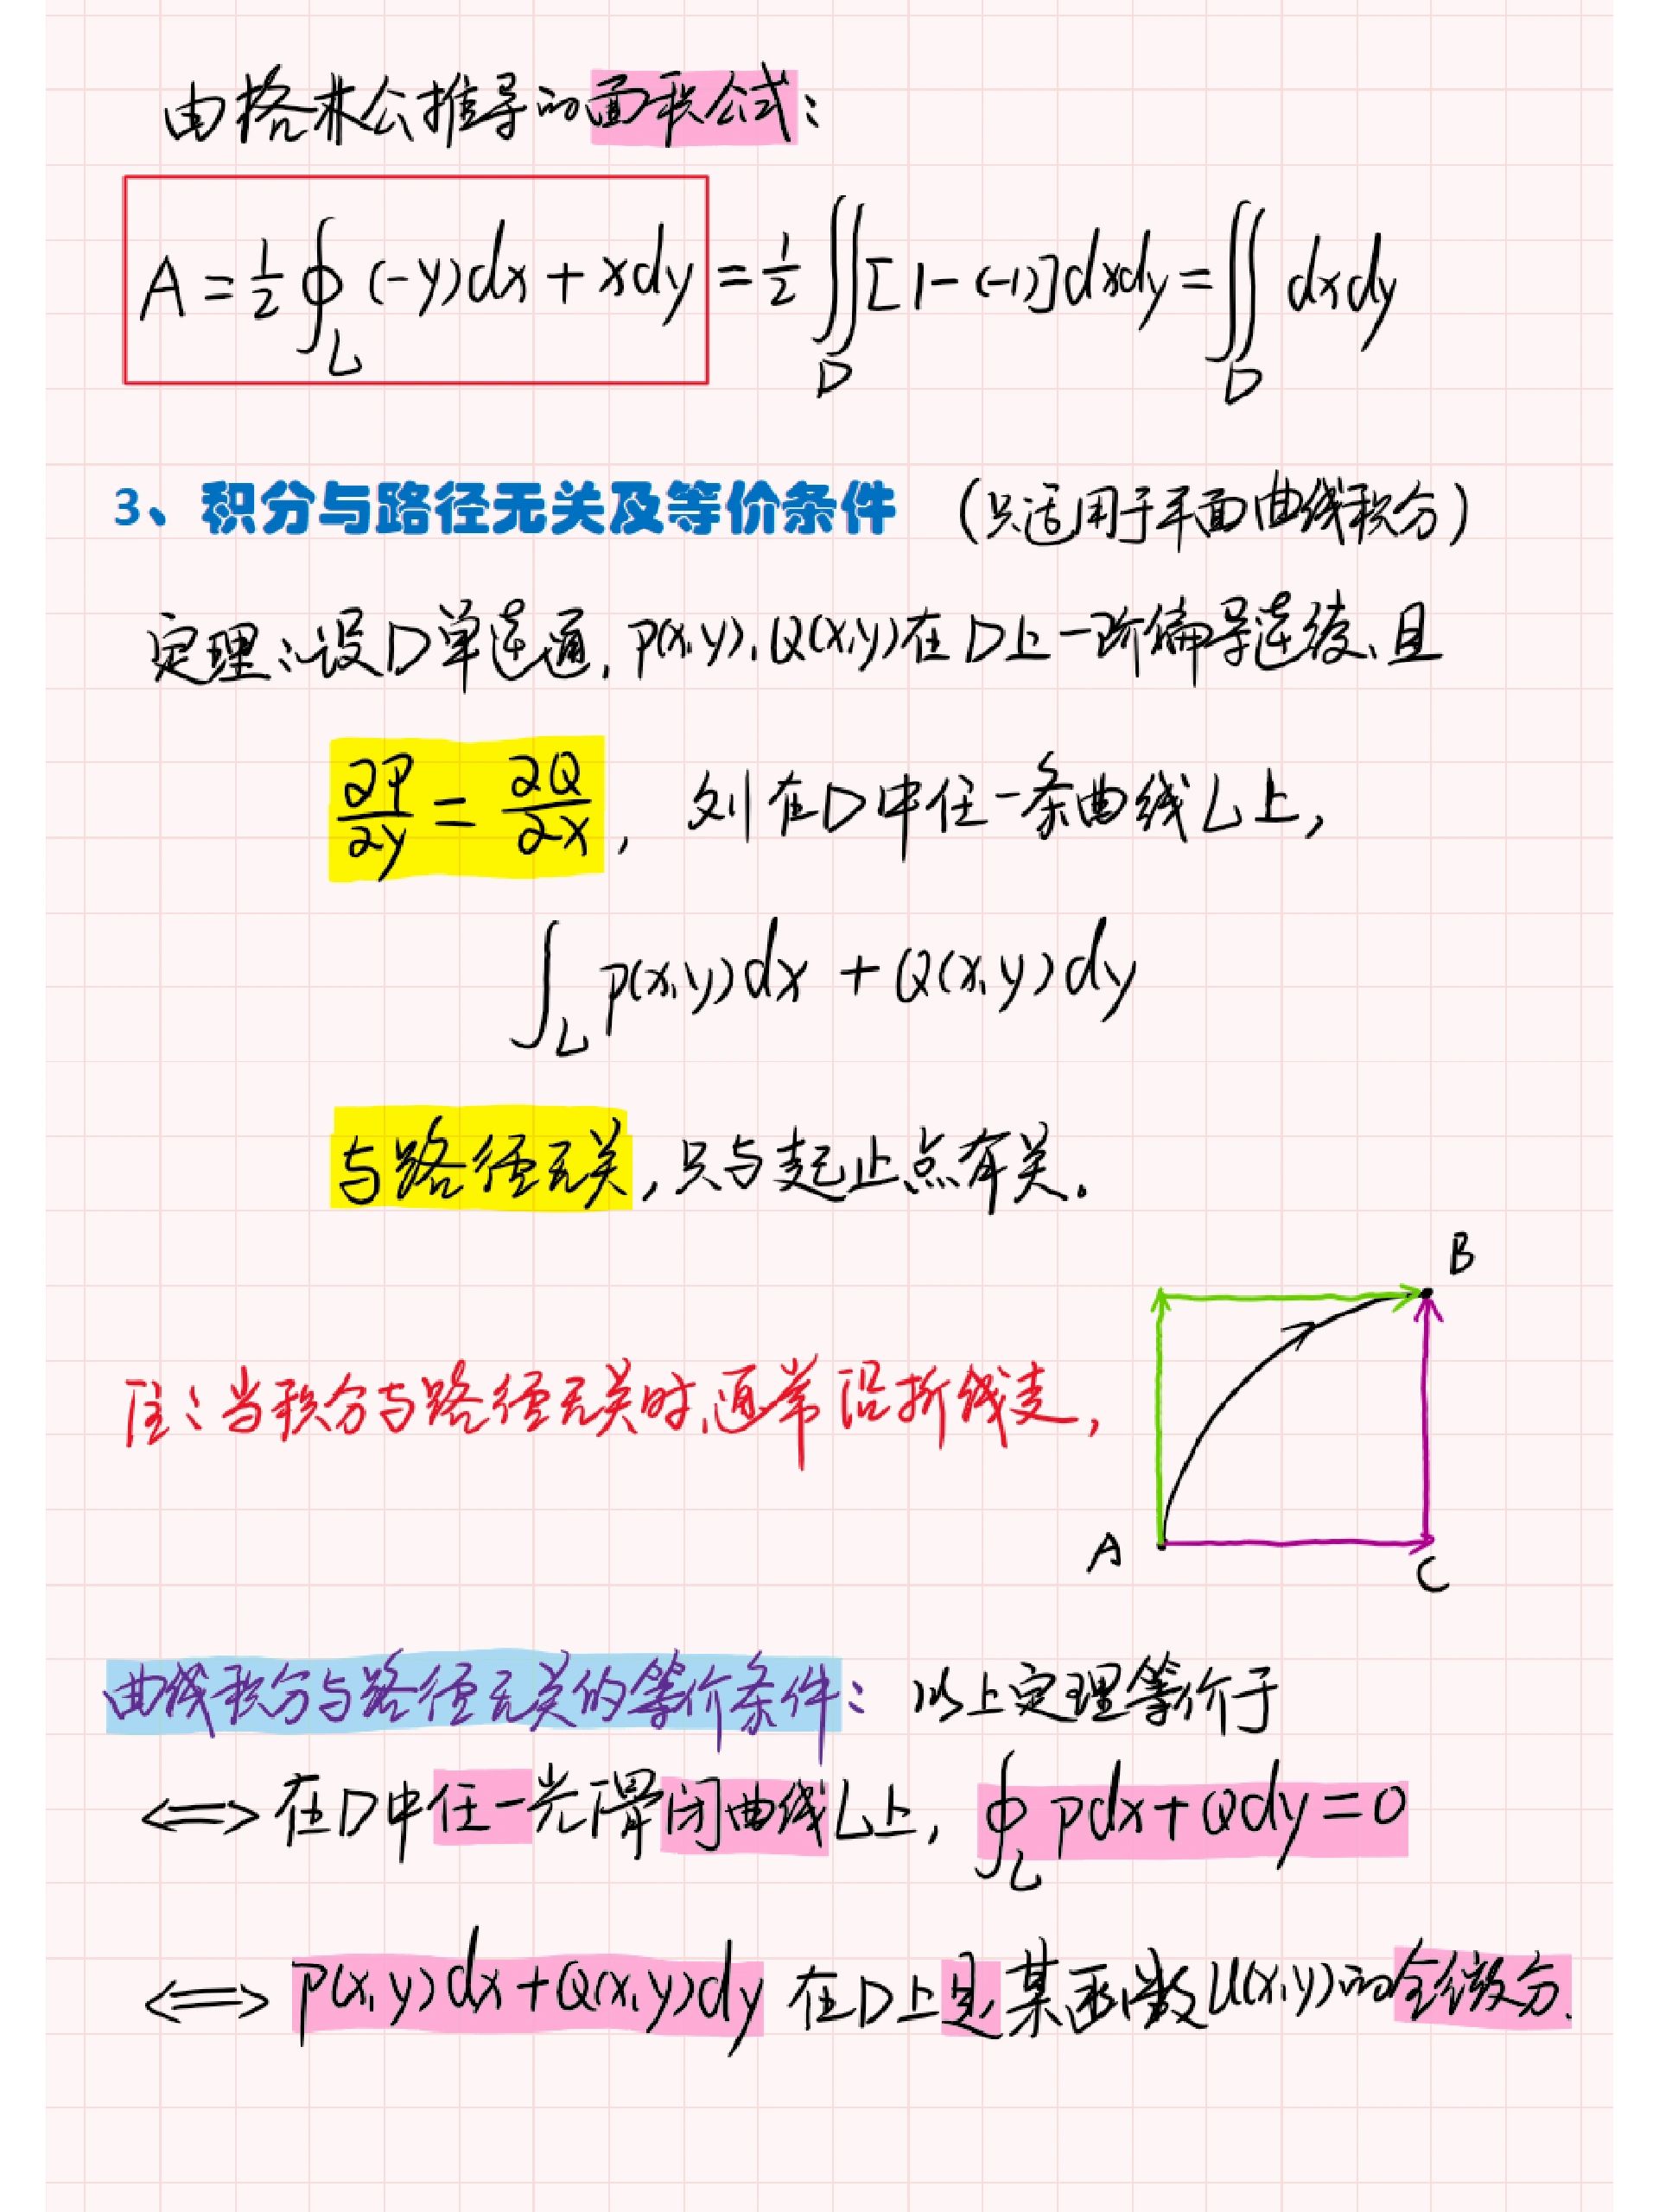 由格林公推导的面积公式：
A = 1/2 ∮_L (-y)dx + xdy = 1/2 ∬_D [1-(-1)]dxdy = ∬_D dxdy
3、积分与路径无关及等价条件 (只适用于平面曲线积分)
定理：设D单连通, P(x,y), Q(x,y)在D上一阶偏导连续, 且
∂P/∂y = ∂Q/∂x, 则在D中任一条曲线L上,
∫_L P(x,y)dx + Q(x,y)dy
与路径无关, 只与起止点有关.
B
注：当积分与路径无关时, 通常沿折线走,
A
C
曲线积分与路径无关的等价条件： 以上定理等价于
⟺ 在D中任一光滑闭曲线L上, ∮_L Pdx+Qdy=0
⟺ P(x,y)dx+Q(x,y)dy 在D上是某函数u(x,y)的全微分.